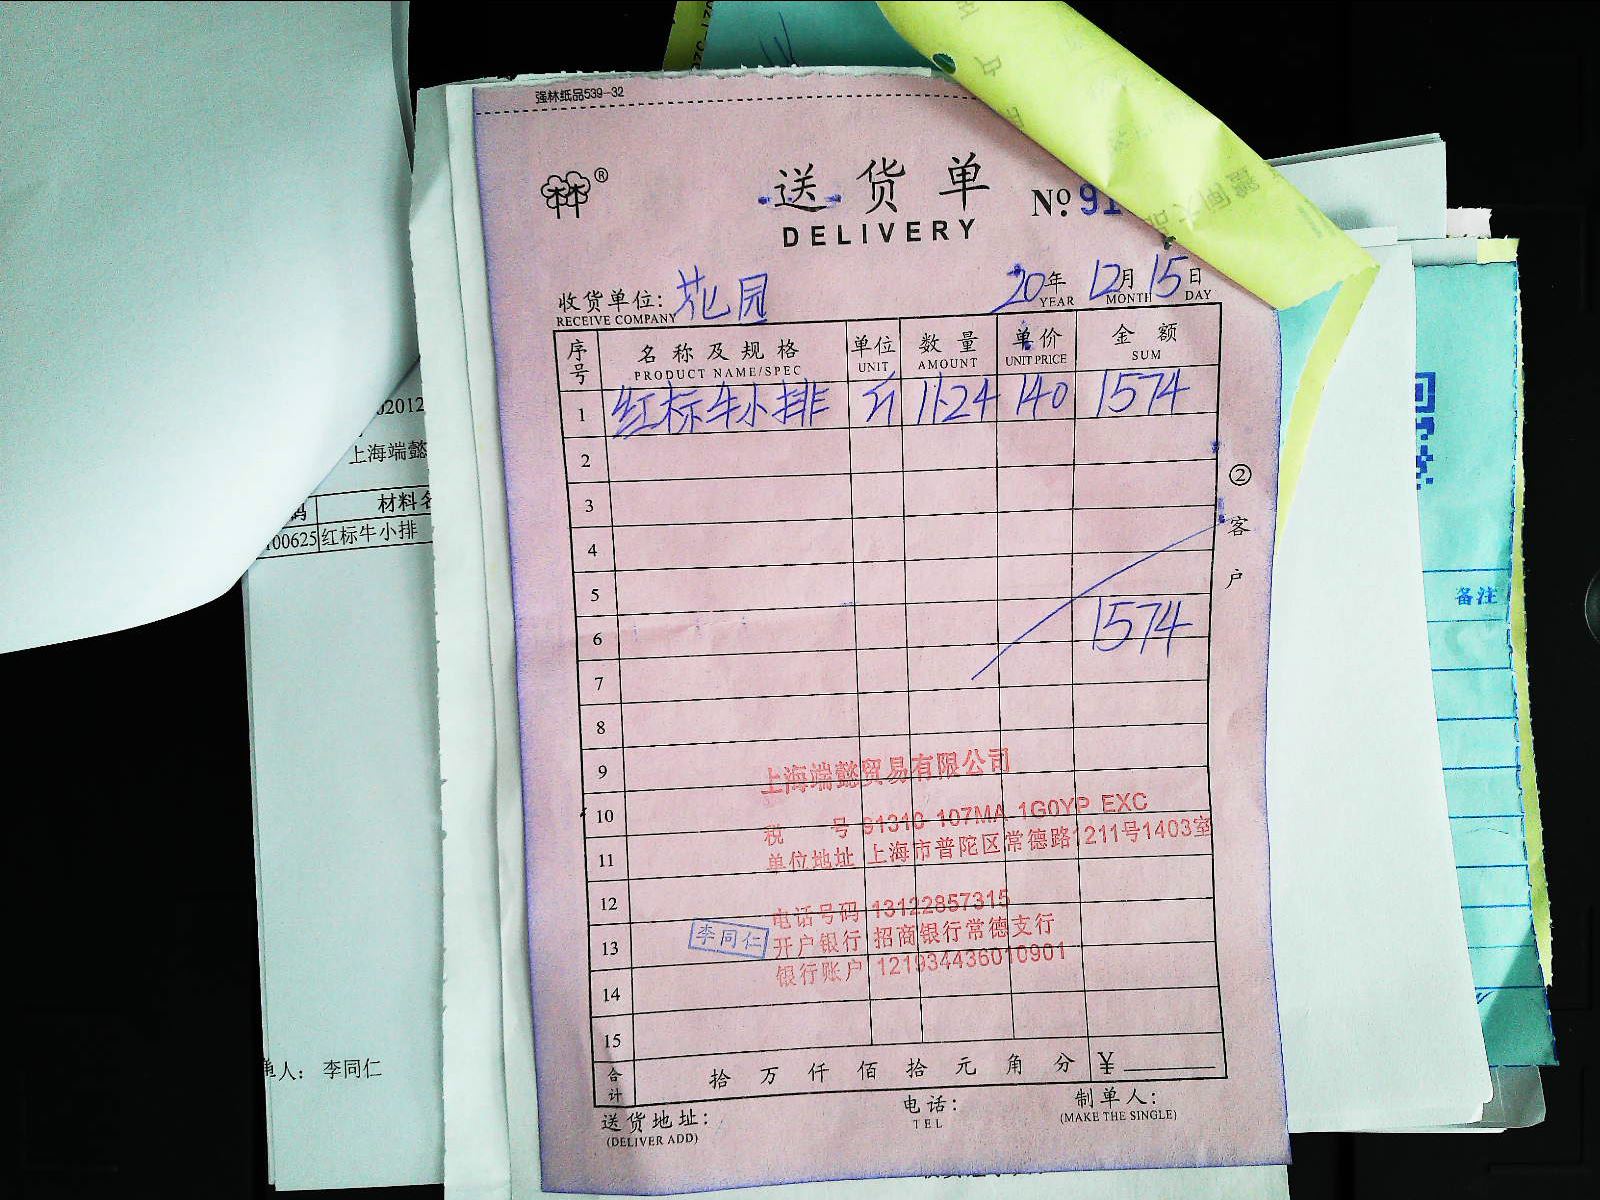 强林纸品539-32
®
送货单
DELIVERY
№ 91
收货单位: 花园
RECEIVE COMPANY
20年 12月 15日
YEAR MONTH DAY
序号 名称及规格 单位 数量 单价 金额
PRODUCT NAME/SPEC UNIT AMOUNT UNIT PRICE SUM
1 红标牛小排 斤 11.24 140 1574
2
3
4
5
6 1574
7
8
9
10
11
12
13
14
15
上海端懿贸易有限公司
税 号 91310 107MA 1G0YP EXC
单位地址 上海市普陀区常德路1211号1403室
电话号码 13122857315
开户银行 招商银行常德支行
银行账户 121934436010901
李同仁
合计 拾 万 仟 佰 拾 元 角 分 ¥
送货地址: 电话: 制单人:
(DELIVER ADD) TEL (MAKE THE SINGLE)
②客户
02012
上海端懿
码 材料名
100625 红标牛小排
单人: 李同仁
备注